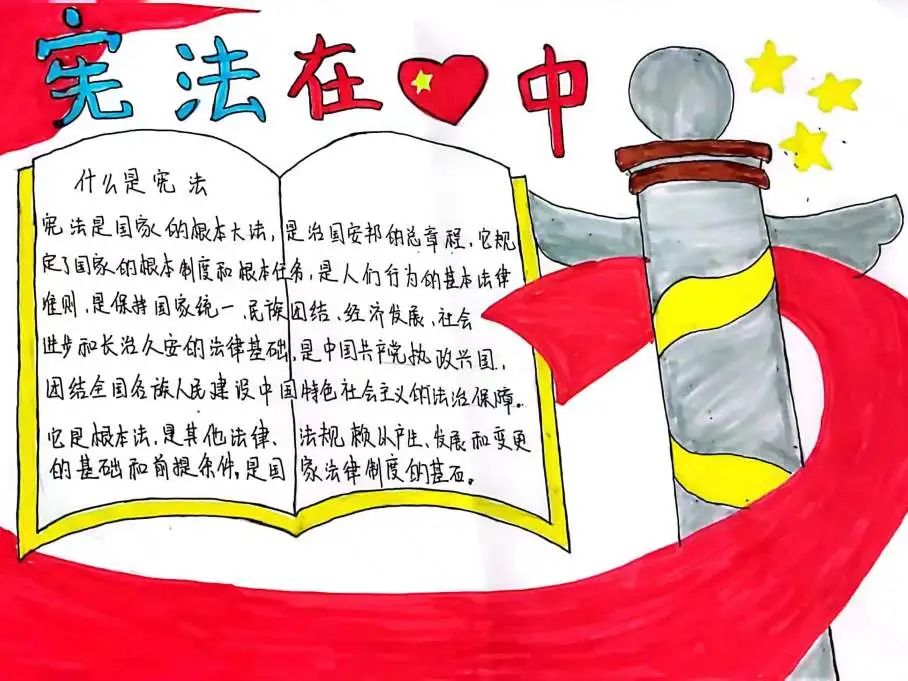 宪法在中
什么是宪法
宪法是国家的根本大法，是治国安邦的总章程，它规
定了国家的根本制度和根本任务，是人们行为的基本法律
准则，是保持国家统一、民族团结、经济发展、社会
进步和长治久安的法律基础，是中国共产党执政兴国、
团结全国各族人民建设中国特色社会主义的法治保障。
它是根本法，是其他法律、法规赖以产生、发展和变更
的基础和前提条件，是国家法律制度的基石。